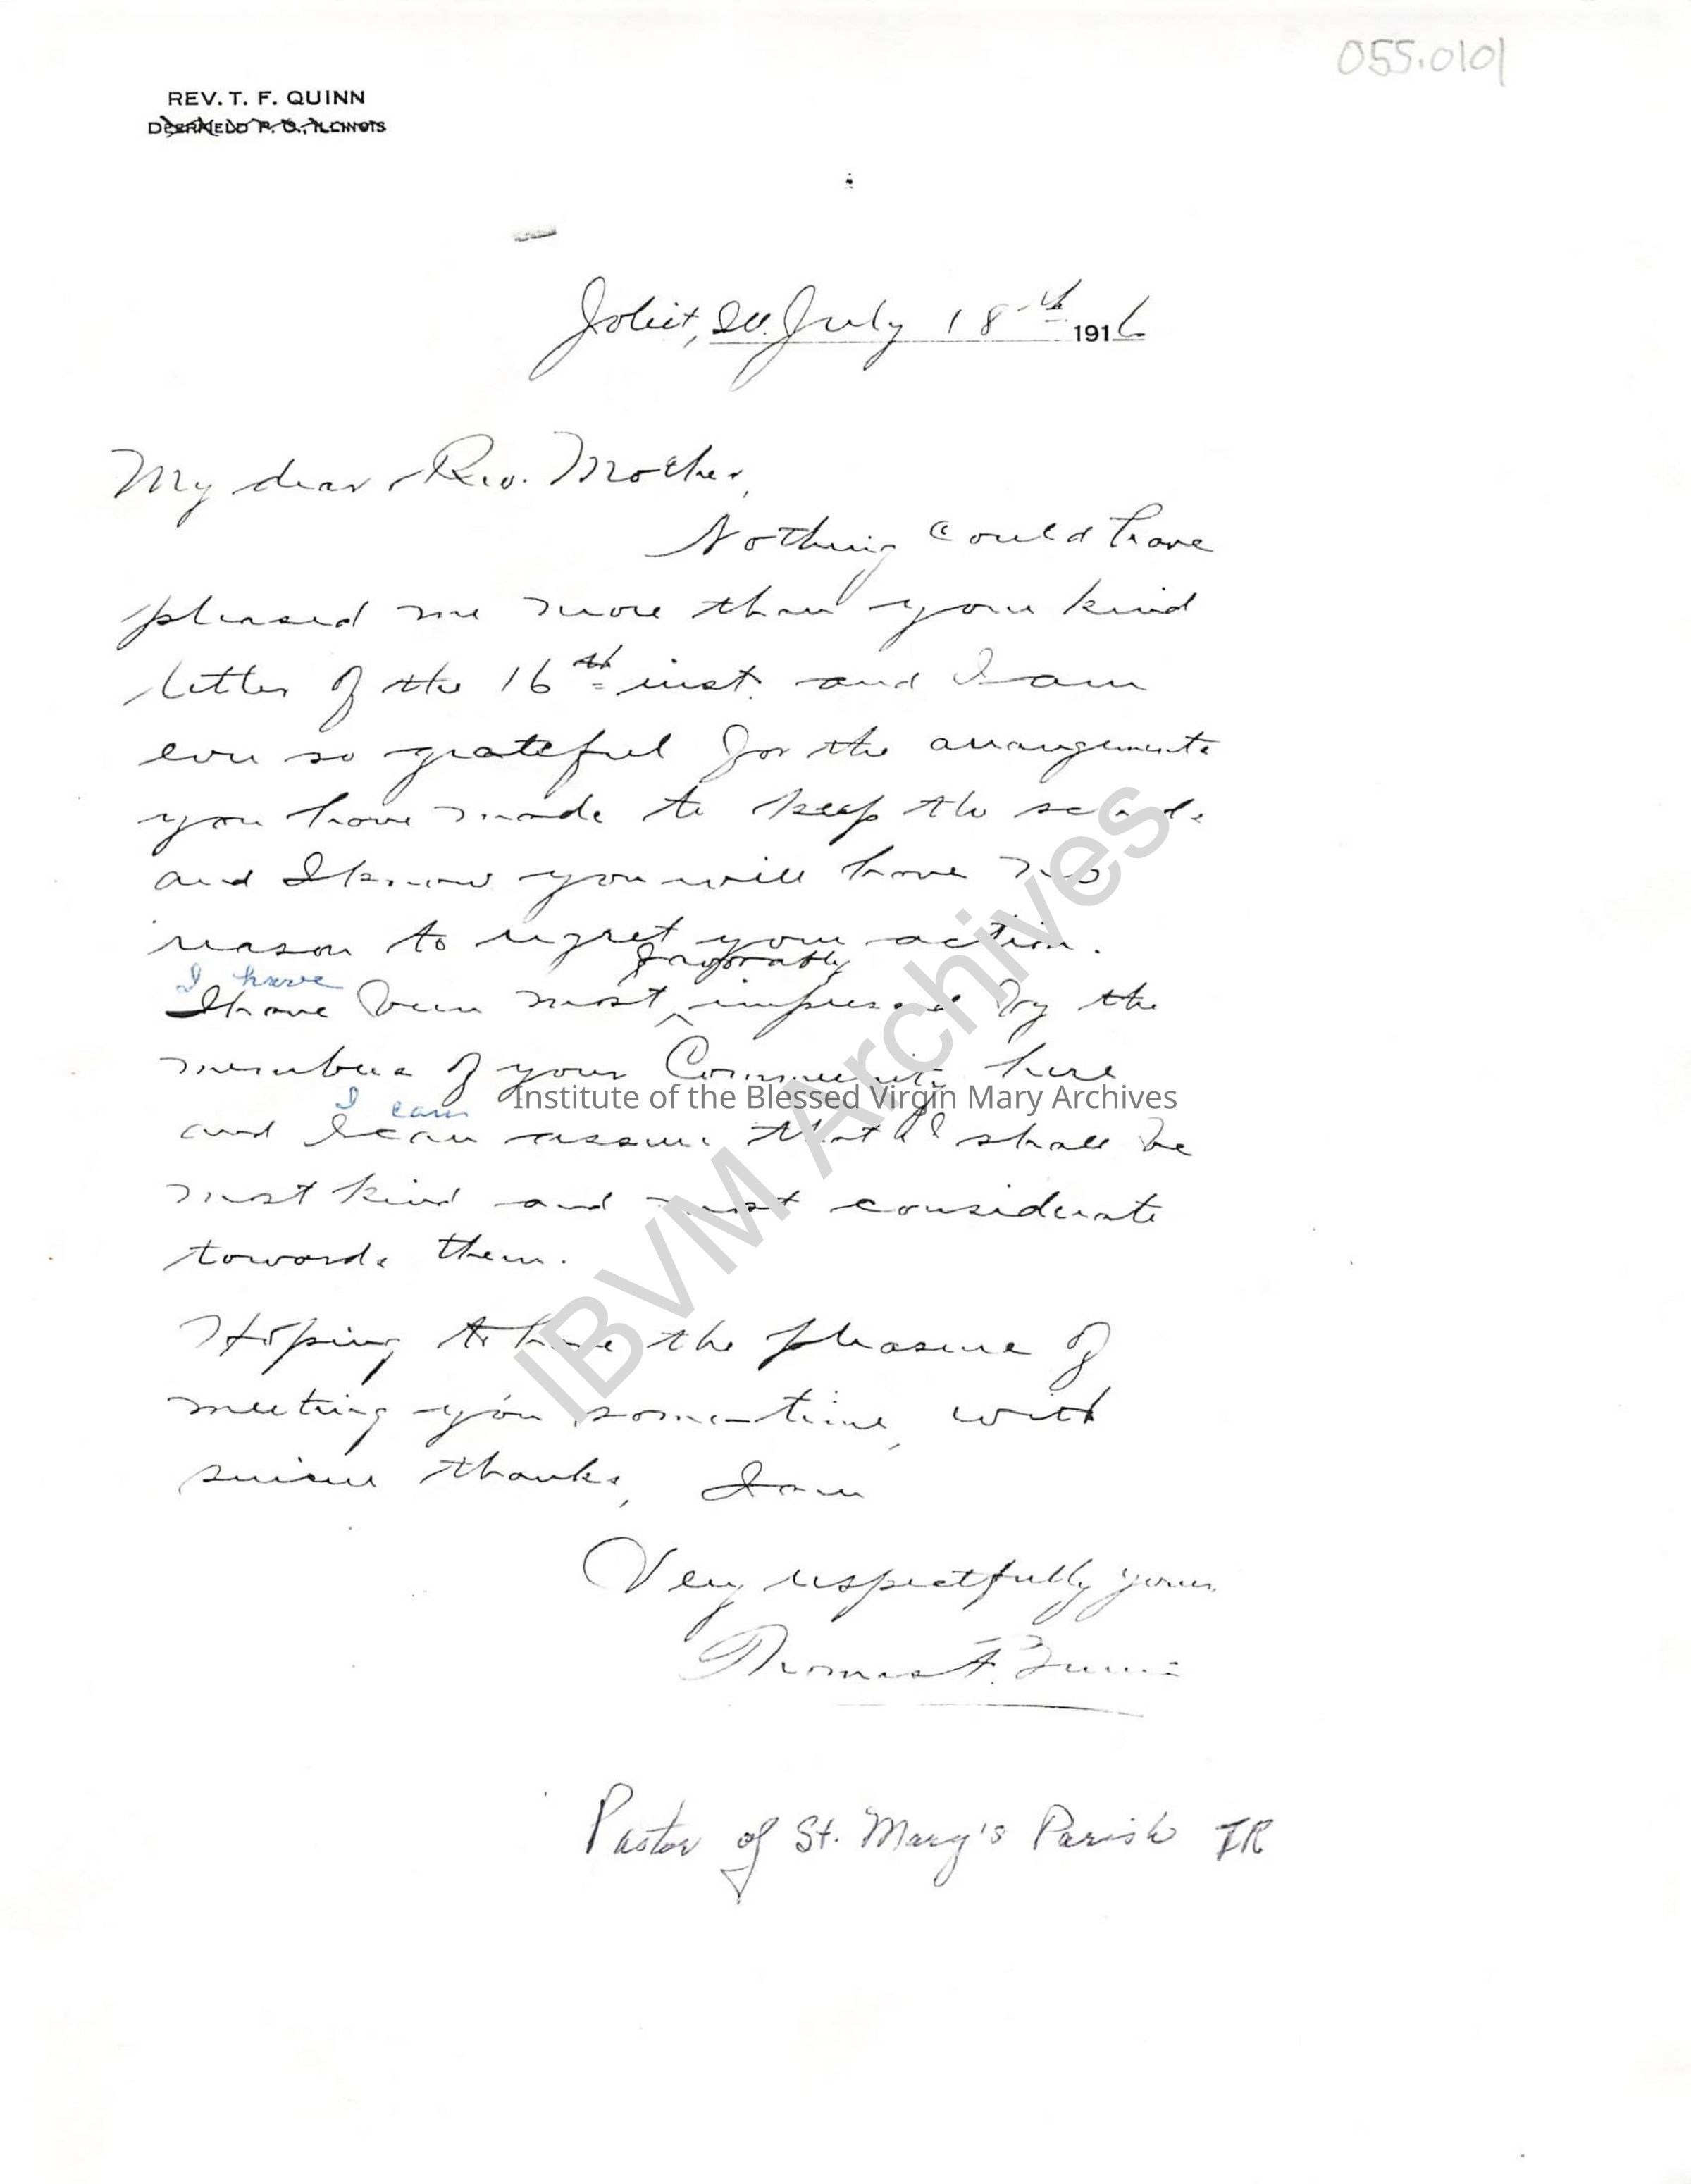 055.0101
REV. T. F. QUINN
DEERFIELD P. O., ILLINOIS
Joliet, Ill. July 18th 1916
My dear Rev. Mother,
Nothing could have
pleased me more than your kind
letter of the 16th inst. and I am
ever so grateful for the arrangements
you have made to keep the
and I know you will have no
reason to regret your action.
favorably
I have
I have been most impressed by the
members of your Community here
Institute of the Blessed Virgin Mary Archives
I can
and I can assure that I shall be
most kind and most considerate
towards them.
Hoping to have the pleasure of
meeting you sometime, with
sincere thanks, I am
Very respectfully yours
Thomas F. Quinn
Pastor of St. Mary's Parish IR
IBVM Archives